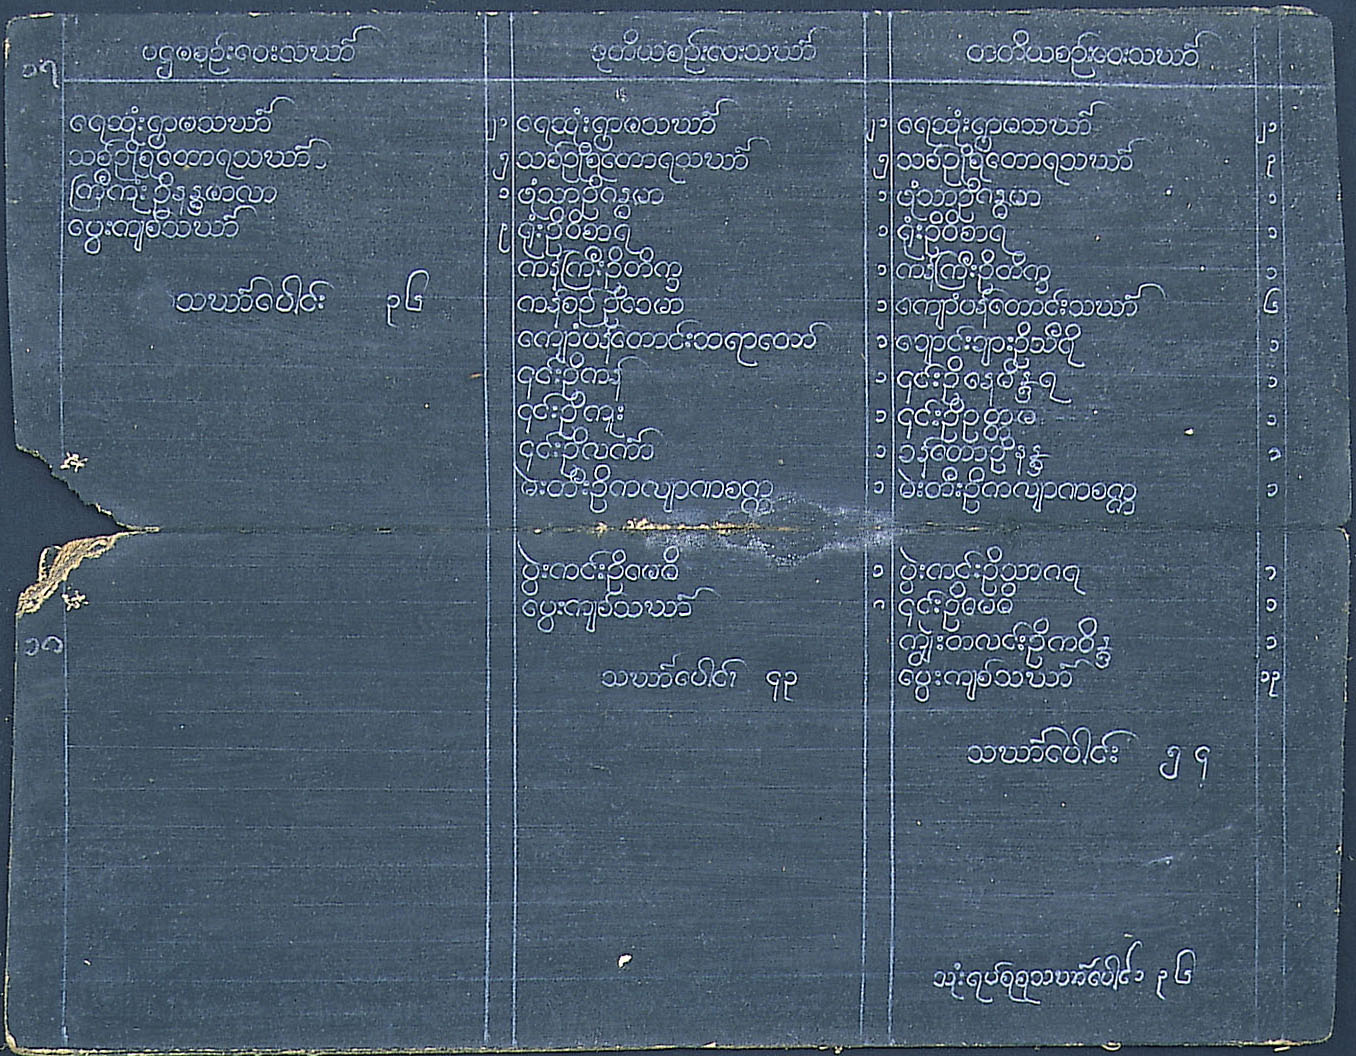 ပဌမစဉ်းဝေးသဃာ်
၁၇
ရေဆုံးရွာမသဃာ် ၂၁
သစ်ဉှိစ္စတောရသဃာ် ၅
ကြီကုံးဦနန္ဒမာလာ ၁
ပွေးကျစ်သဃာ် ၉
သဃာ်ပေါင်း ၃၆
ဒုတိယစဉ်းလေးသဃာ်
ရေဆုံးရွာမသဃာ် ၂၁
သစ်ဉှိစ္စတောရသဃာ် ၅
ဗုံသာဦဂန္ဓမာ ၁
ရုံးဦဝိစာရ ၁
ကန်ကြီးဦတိက္ခ ၁
ကန်စဉ်ဦခေမာ ၁
ကျောံပန်တောင်းဆရာတော် ၁
၎င်းဦကန် ၁
၎င်းဦကူး ၁
၎င်းဦလင်္ကာ ၁
မဲးတီးဦကလျာဏစက္က ၁
ပွဲးကင်းဦမေဓိ ၁
ပွေးကျစ်သဃာ် ၈
သဃာ်ပေါင်း ၄၃
တတိယစဉ်းဝေးသဃာ်
ရေဆုံးရွာမသဃာ် ၂၁
သစ်ဉှိစ္စတောရသဃာ် ၃
ဗုံသာဦဂန္ဓမာ ၁
ရုံးဦဝိစာရ ၁
ကန်ကြီးဦတိက္ခ ၁
ကျောံပန်တောင်းသဃာ် ၆
ချောင်းဖျားဦသီဝိ ၁
၎င်းဦနေမိန္ဒရ ၁
၎င်းဦဥတ္တမ ၁
ခန်တောဦနန္ဒ ၁
မဲးတီးဦကလျာဏစက္က ၁
ပွဲးကင်းဦသာဂရ ၁
၎င်းဦမေဓိ ၁
ကျွဲးတလင်းဦကဝိန္ဒ ၁
ပွေးကျစ်သဃာ် ၁၃
သဃာ်ပေါင်း ၅၄
၁၈
သုံးရပ်စုစုသဃာ်ပေါင်း ၃၆